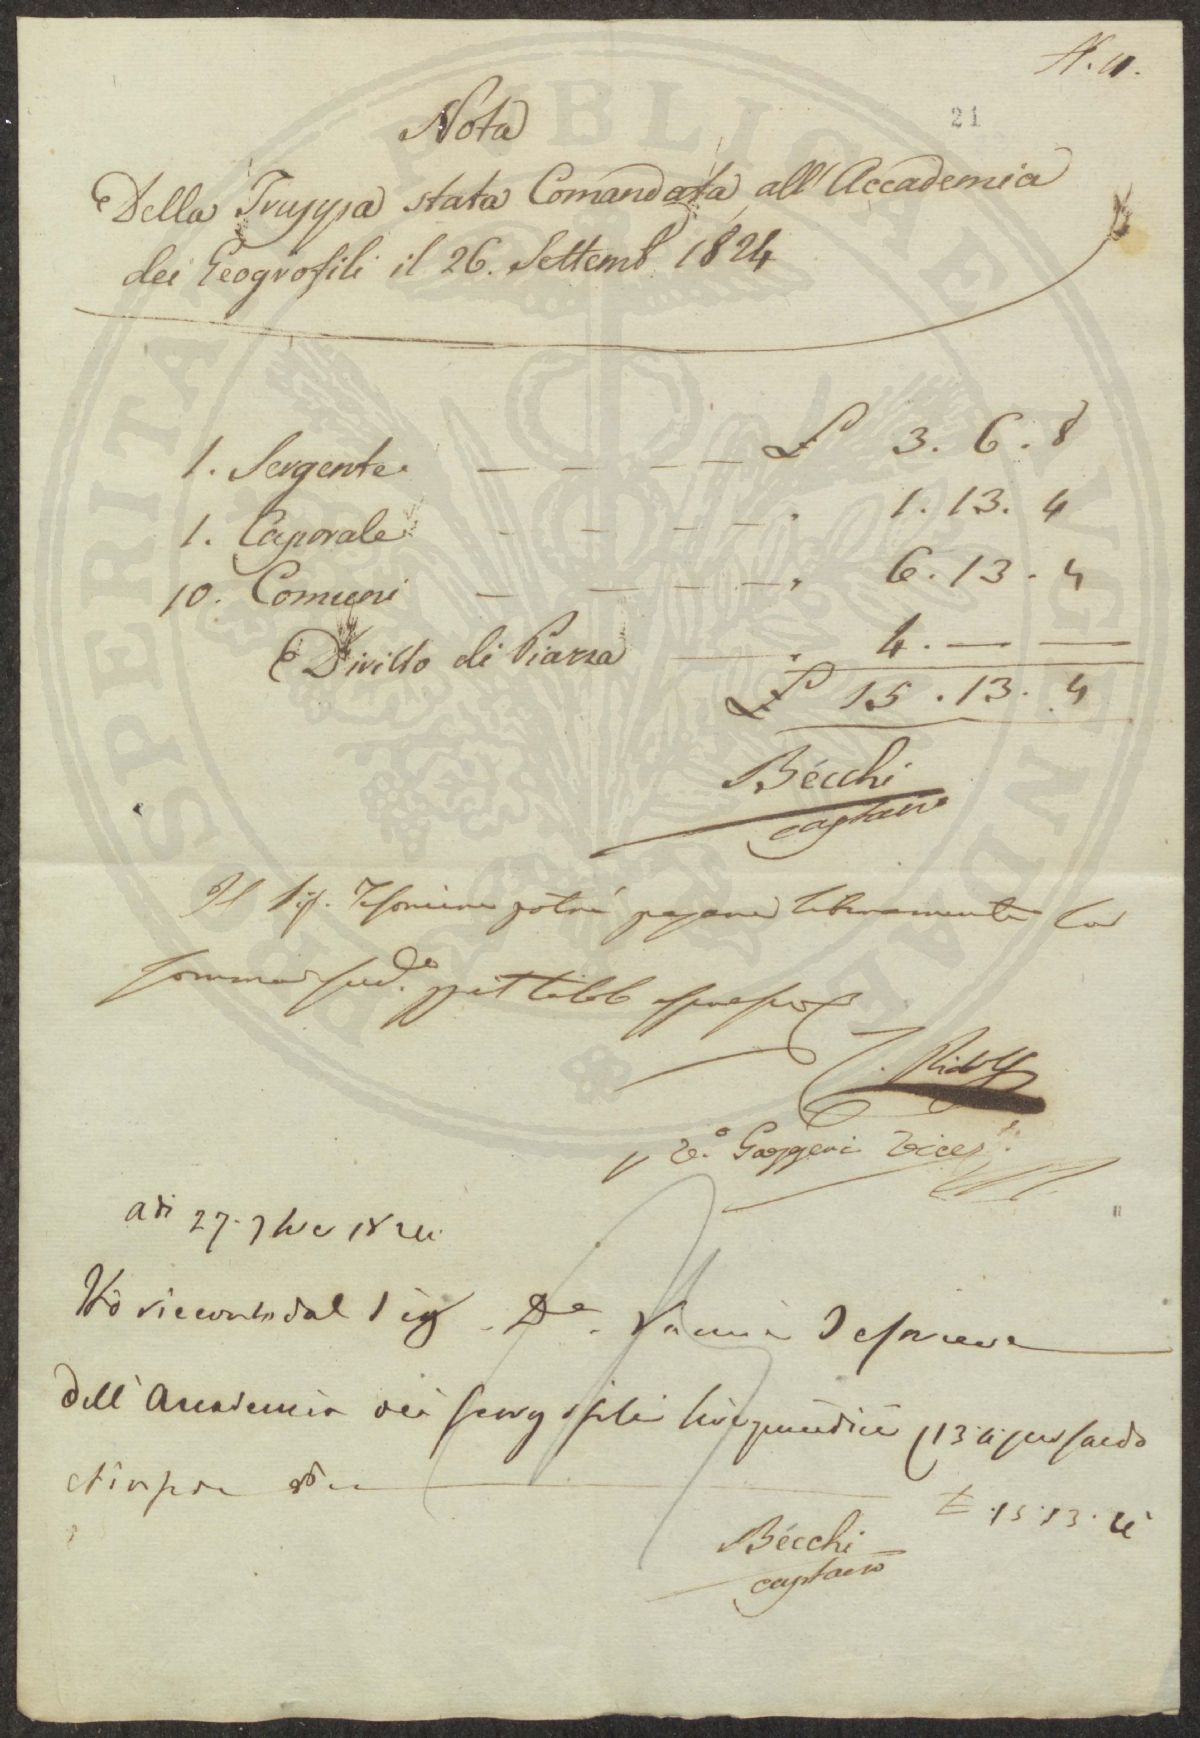 N. 11.
21
Nota
Della Truppa stata Comandata all'Accademia
dei Geogrofili il 26. Settemb. 1824
1. Sergente £ 3. 6. 8
1. Caporale " 1. 13. 4
10. Comuni " 6. 13. 4
Diritto di Piazza " 4. — —
£ 15. 13. 4
Bécchi
capitano
Il Sig. Tesoriere potrà pagare liberamente la
somma sud.a
C. Ridolfi
V.o Gazzeri
adi 27. 7bre 1824.
Hò ricevuto dal Sig. D.e Tesoriere
dell'Accademia dei Georgofili lire quindici 13 4 per saldo
£. 15. 13. 4
Bécchi
capitano
PROSPERITATI PUBLICAE AUGENDAE